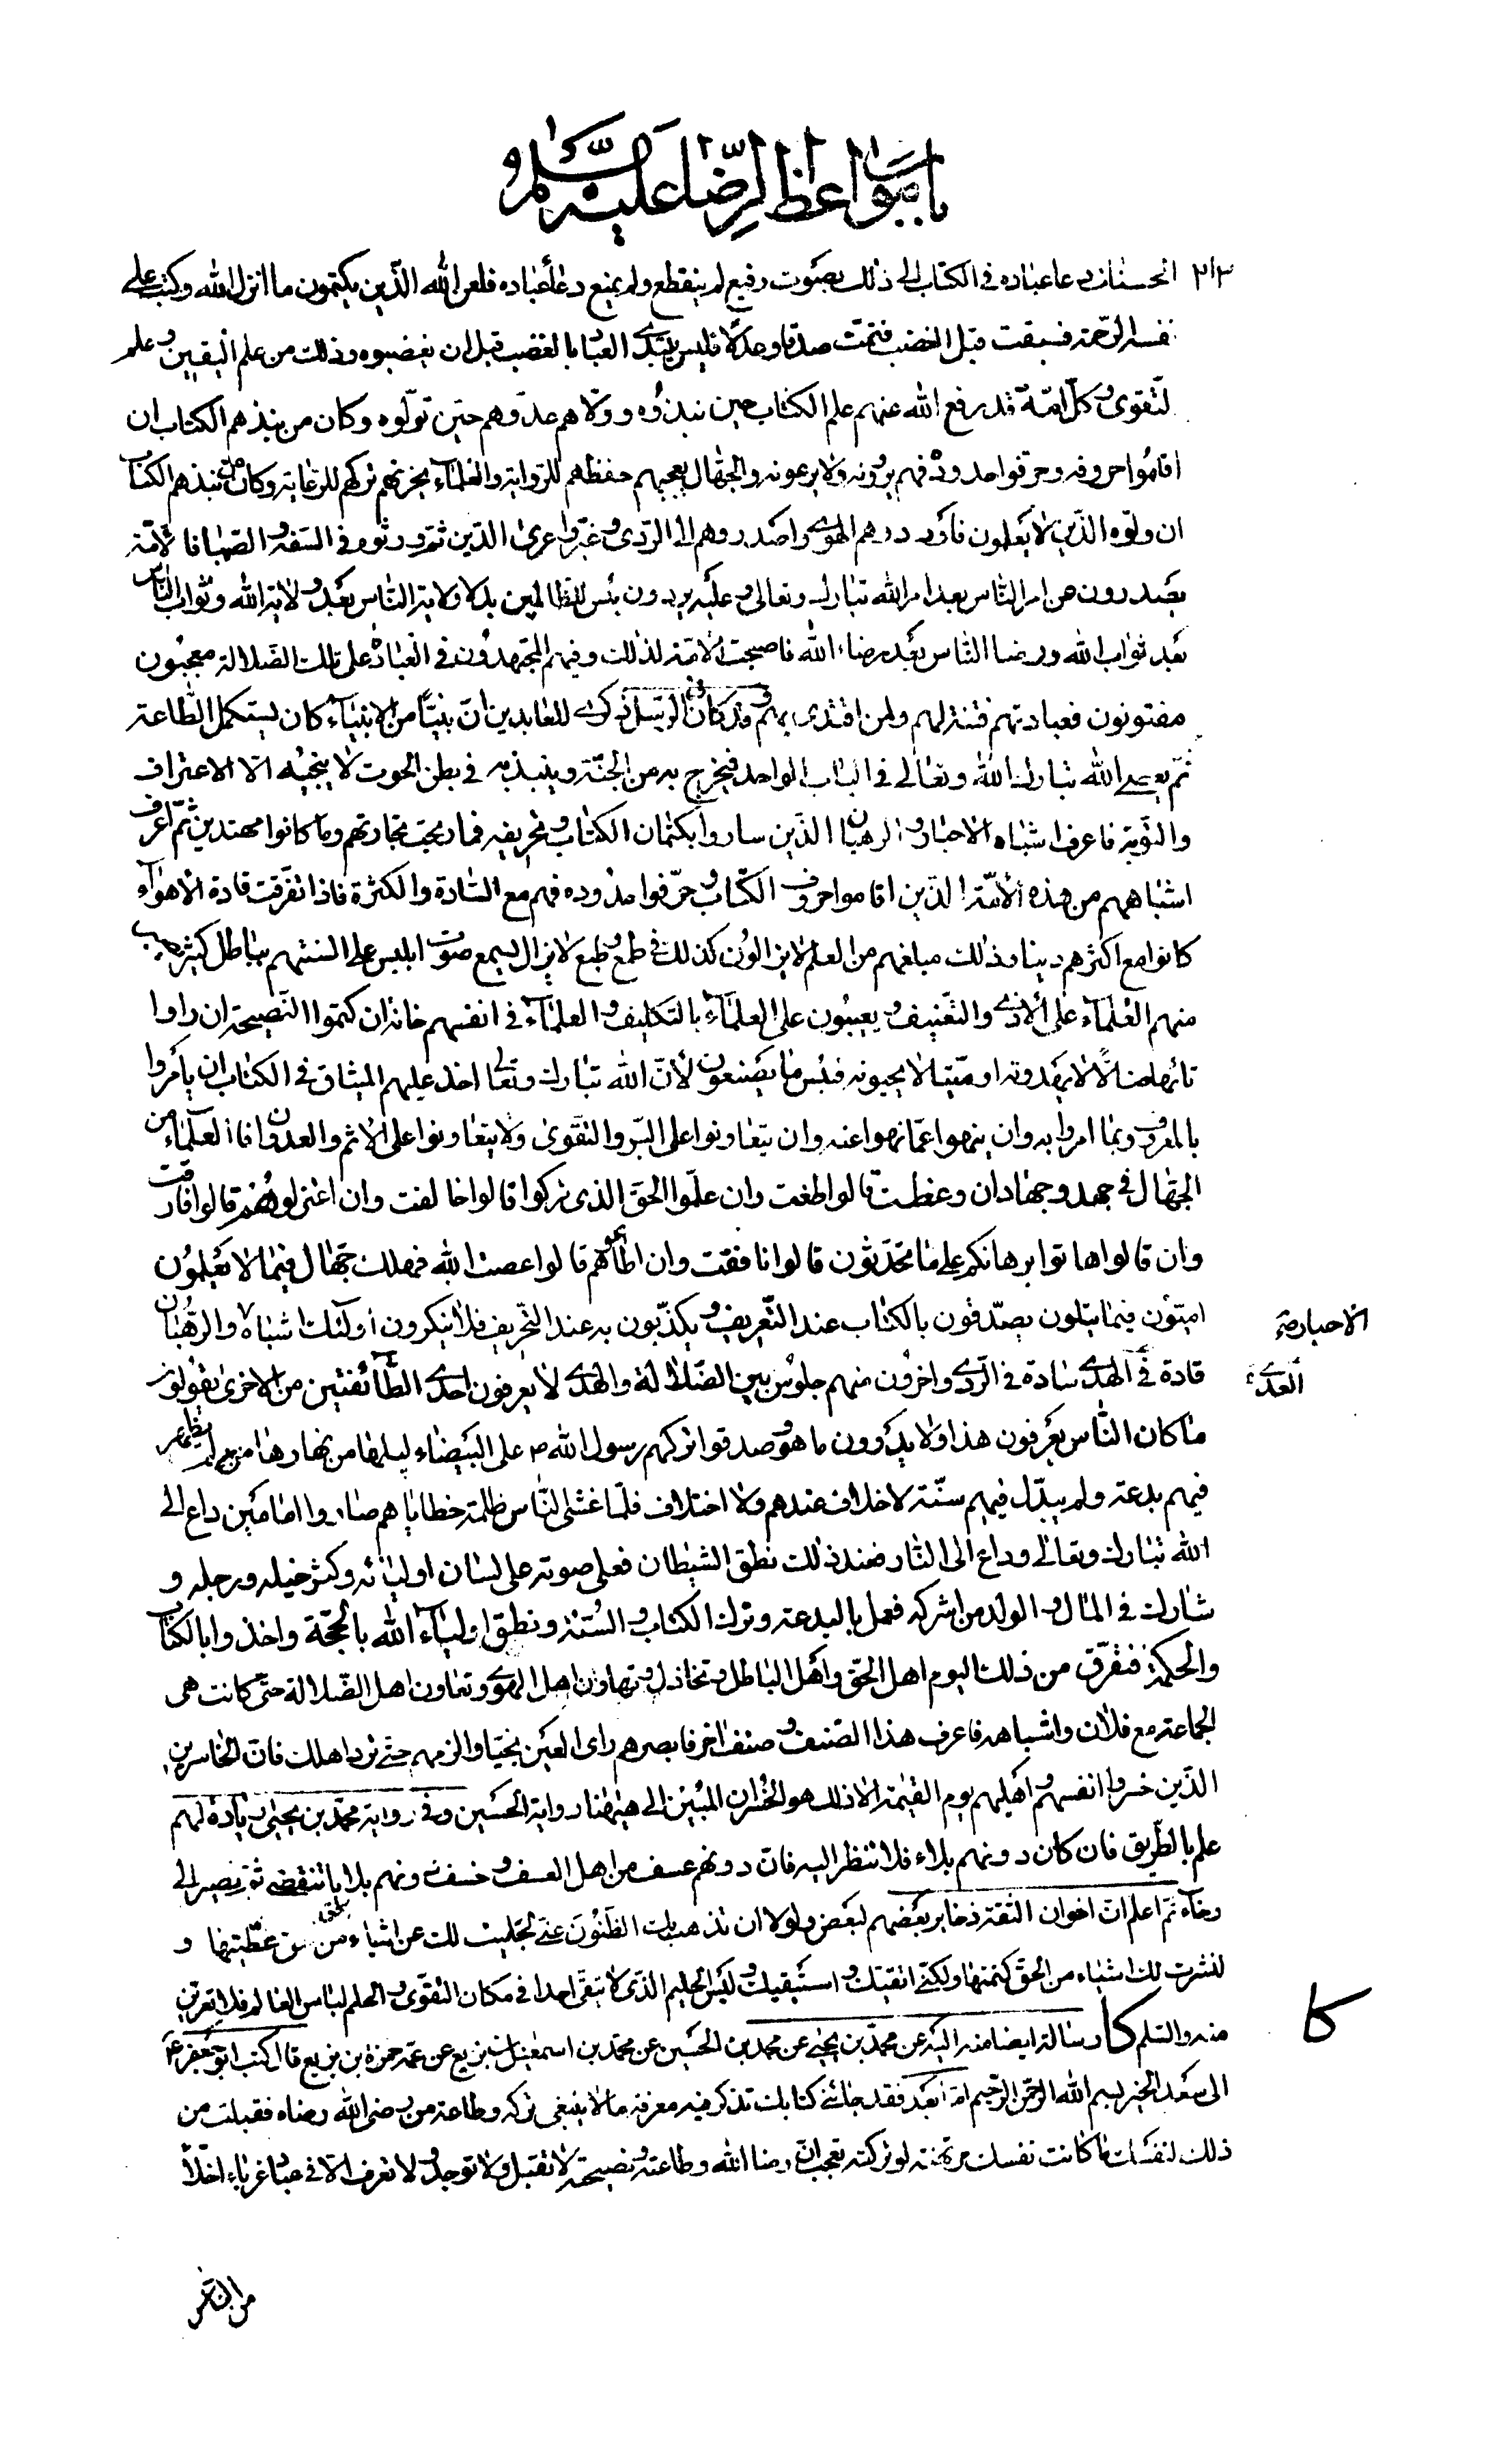 باب مواعظ الرضا عليه السلام و
٢١٣ الحسنات دعا عباده في الكتاب الى ذلك بصوت رفيع لم ينقطع ولم يمنع دعاء عباده فلعن الله الذين يكتمون ما انزل الله وكتب على
نفسه الرحمة فسبقت قبل الغضب فتمت صدقا وعدلا فليس يبتدئ العباد بالغضب قبل ان يغضبوه وذلك من علم اليقين و علم
لتقوى وكل امة قد رفع الله عنهم علم الكتاب حين نبذوه وولاهم عدوهم حين تولوه وكان من نبذهم الكتاب ان
اقاموا حروفه وحرفوا حدوده فهم يروونه ولا يرعونه والجهال يعجبهم حفظهم للرواية والعلماء يحزنهم تركهم للرعاية وكان من نبذهم الكتاب
ان ولوه الذين لا يعلمون فاوردوهم الهوى واصدروهم الى الردى وغيروا عرى الدين ثم ورثوه في السفه والصبا فالامة
يصدرون عن امر الناس بعد امر الله تبارك وتعالى وعليه يردون بئس للظالمين بدلا ولاية الناس بعد ولاية الله وثواب الناس
بعد ثواب الله ورضا الناس بعد رضاء الله فاصبحت الامة لذلك وفيهم المجتهدون في العبادة على تلك الضلالة معجبون
مفتونون فعبادتهم فتنة لهم ولمن اقتدى بهم وقد كان في الرسل ذكرى للعابدين ان نبيا من الانبياء كان يستكمل الطاعة
ثم يعصي الله تبارك الله وتعالى في الباب الواحد فيخرج به من الجنة وينبذ به في بطن الحوت لا ينجيه الا الاعتراف
والتوبة فاعرف اشباه الاحبار والرهبان الذين ساروا بكتمان الكتاب وتحريفه فما ربحت تجارتهم وما كانوا مهتدين ثم اعرف
اشباههم من هذه الامة الذين اقاموا حروف الكتاب وحرفوا حدوده فهم مع السادة والكثرة فاذا تفرقت قادة الاهواء
كانوا مع اكثرهم دينا وذلك مبلغهم من العلم لا يزالون كذلك في طمع وطبع لا يزال يسمع صوت ابليس على السنتهم بباطل كثير يصبر
منهم العلماء على الاذى والتعنيف ويعيبون على العلماء بالتكليف والعلماء في انفسهم خانة ان كتموا النصيحة ان راوا
تائها ضالا لا يهدونه او ميتا لا يحيونه فبئس ما يصنعون لان الله تبارك وتعالى اخذ عليهم الميثاق في الكتاب ان يأمروا
بالمعروف وبما امروا به وان ينهوا عما نهوا عنه وان يتعاونوا على البر والتقوى ولا يتعاونوا على الاثم والعدوان فالعلماء من
الجهال في جهد وجهاد ان وعظت قالوا طغت وان علموا الحق الذي تركوا قالوا خالفت وان اعتزلوهم قالوا فارقت
وان قالوا هاتوا برهانكم على ما تحدثون قالوا نافقت وان اطاعوهم قالوا عصت الله فهلك جهال فيما لا يعلمون
اميون فيما يتلون يصدقون بالكتاب عند التعريف ويكذبون به عند التحريف فلا ينكرون اولئك اشباه والرهبان
الاحبار صح
قادة في الهدى سادة في الردى واخرون منهم جلوس بين الضلالة والهدى لا يعرفون احدى الطائفتين من الاخرى يقولون
ما كان الناس يعرفون هذا ولا يدرون ما هو وصدقوا تركهم رسول الله ص على البيضاء ليلها من نهارها لم يظهر
فيهم بدعة ولم يبدل فيهم سنة لا خلاف عندهم ولا اختلاف فلما غشى الناس ظلمة خطاياهم صاروا امامين داع الى
الله تبارك وتعالى وداع الى النار فعند ذلك نطق الشيطان فعلى صوته على لسان اوليائه وكثر خيله ورجله و
شارك في المال والولد من اشركه فعمل بالبدعة وترك الكتاب والسنة ونطق اولياء الله بالحجة واخذوا بالكتاب
والحكمة فتفرق من ذلك اليوم اهل الحق واهل الباطل وتخاذل وتهاون اهل الهوى وتعاون اهل الضلالة حتى كانت هى
الجماعة مع فلان واشباهه فاعرف هذا الصنف وصنف اخر فابصرهم راى العين نجيا والزمهم حتى ترد اهلك فان الخاسرين
الذين خسروا انفسهم واهليهم يوم القيمة الا ذلك هو الخسران المبين الى هيهنا رواية الحسين وفي رواية محمد بن يحيى زيادة لهم
علم بالطريق فان كان دونهم بلاء فلا تنظر اليه فان دونهم عسف من اهل العسف وخسف ودونهم بلايا تنقضي ثم تصير الى
رخاء ثم اعلم ان اخوان الثقة ذخاير بعضهم لبعض ولولا ان تذهب بك الظنون عني لجليت لك عن اشياء من الحق غطيتها و
لنشرت لك اشياء من الحق كتمتها ولكني اتقيك واستبقيك وليس الحليم الذي لا يتقى احدا في مكان التقوى والحلم لباس العالم فلا تعرين
منه والسلم كا رسالة ايضا منه اليه عن محمد بن يحيى عن محمد بن الحسين عن محمد بن اسمعيل بن بزيع عن عمه حمزة بن بزيع قال كتب ابو جعفر ع
كا
الى سعد الخير بسم الله الرحمن الرحيم اما بعد فقد جائني كتابك تذكر فيه معرفة ما لا ينبغي تركه وطاعة من رضى الله رضاه فقبلت من
ذلك لنفسك ما كانت نفسك مرتهنة لو تركته تعجب ان رضا الله وطاعته ونصيحته لا تقبل ولا توجد ولا تعرف الا في عباد غرباء اخلاء
من الناس